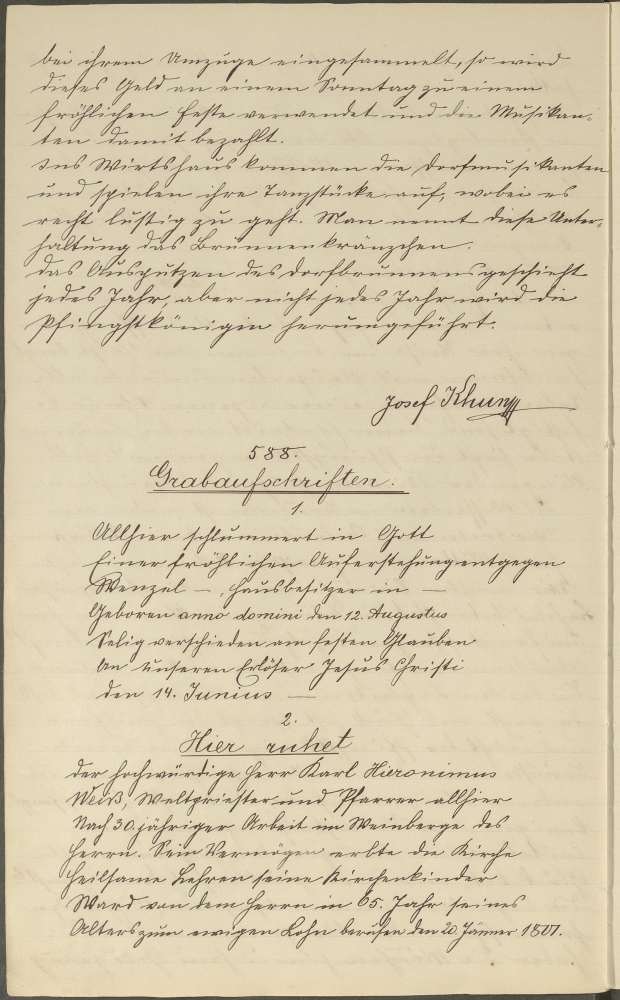 bei ihrem Umzuge eingesammelt, so wird
dieses Geld an einem Sonntag zu einem
fröhlichen Feste verwendet und die Musikan-
ten damit bezahlt.
Ins Wirtshaus kommen die Dorfmusikanten
und spielen ihre Tanzstücke auf, wobei es
recht lustig zu geht. Man nennt diese Unter-
haltung das Brunnenkränzchen.
Das Ausputzen des Dorfbrunnens geschieht
jedes Jahr, aber nicht jedes Jahr wird die
Pfingstkönigin herumgeführt.
Josef Khun
588.
Grabaufschriften.
1.
Allhier schlummert in Gott
Einer fröhlichen Auferstehung entgegen
Wenzel –, Hausbesitzer in –
Geboren anno domini den 12. Augustus
Selig verschieden am festen Glauben
An unseren Erlöser Jesus Christi
den 14. Junius –
2.
Hier ruhet
der hochwürdige Herr Karl Hieronimus
Weiß, Weltpriester und Pfarrer allhier
Nach 30 jähriger Arbeit im Weinberge des
Herrn. Sein Vermögen erbte die Kirche
Heilsame Lehren seine Kirchenkinder
Ward von dem Herrn in 65. Jahr seines
Alters zum ewigen Lohn berufen den 20. Jänner 1801.